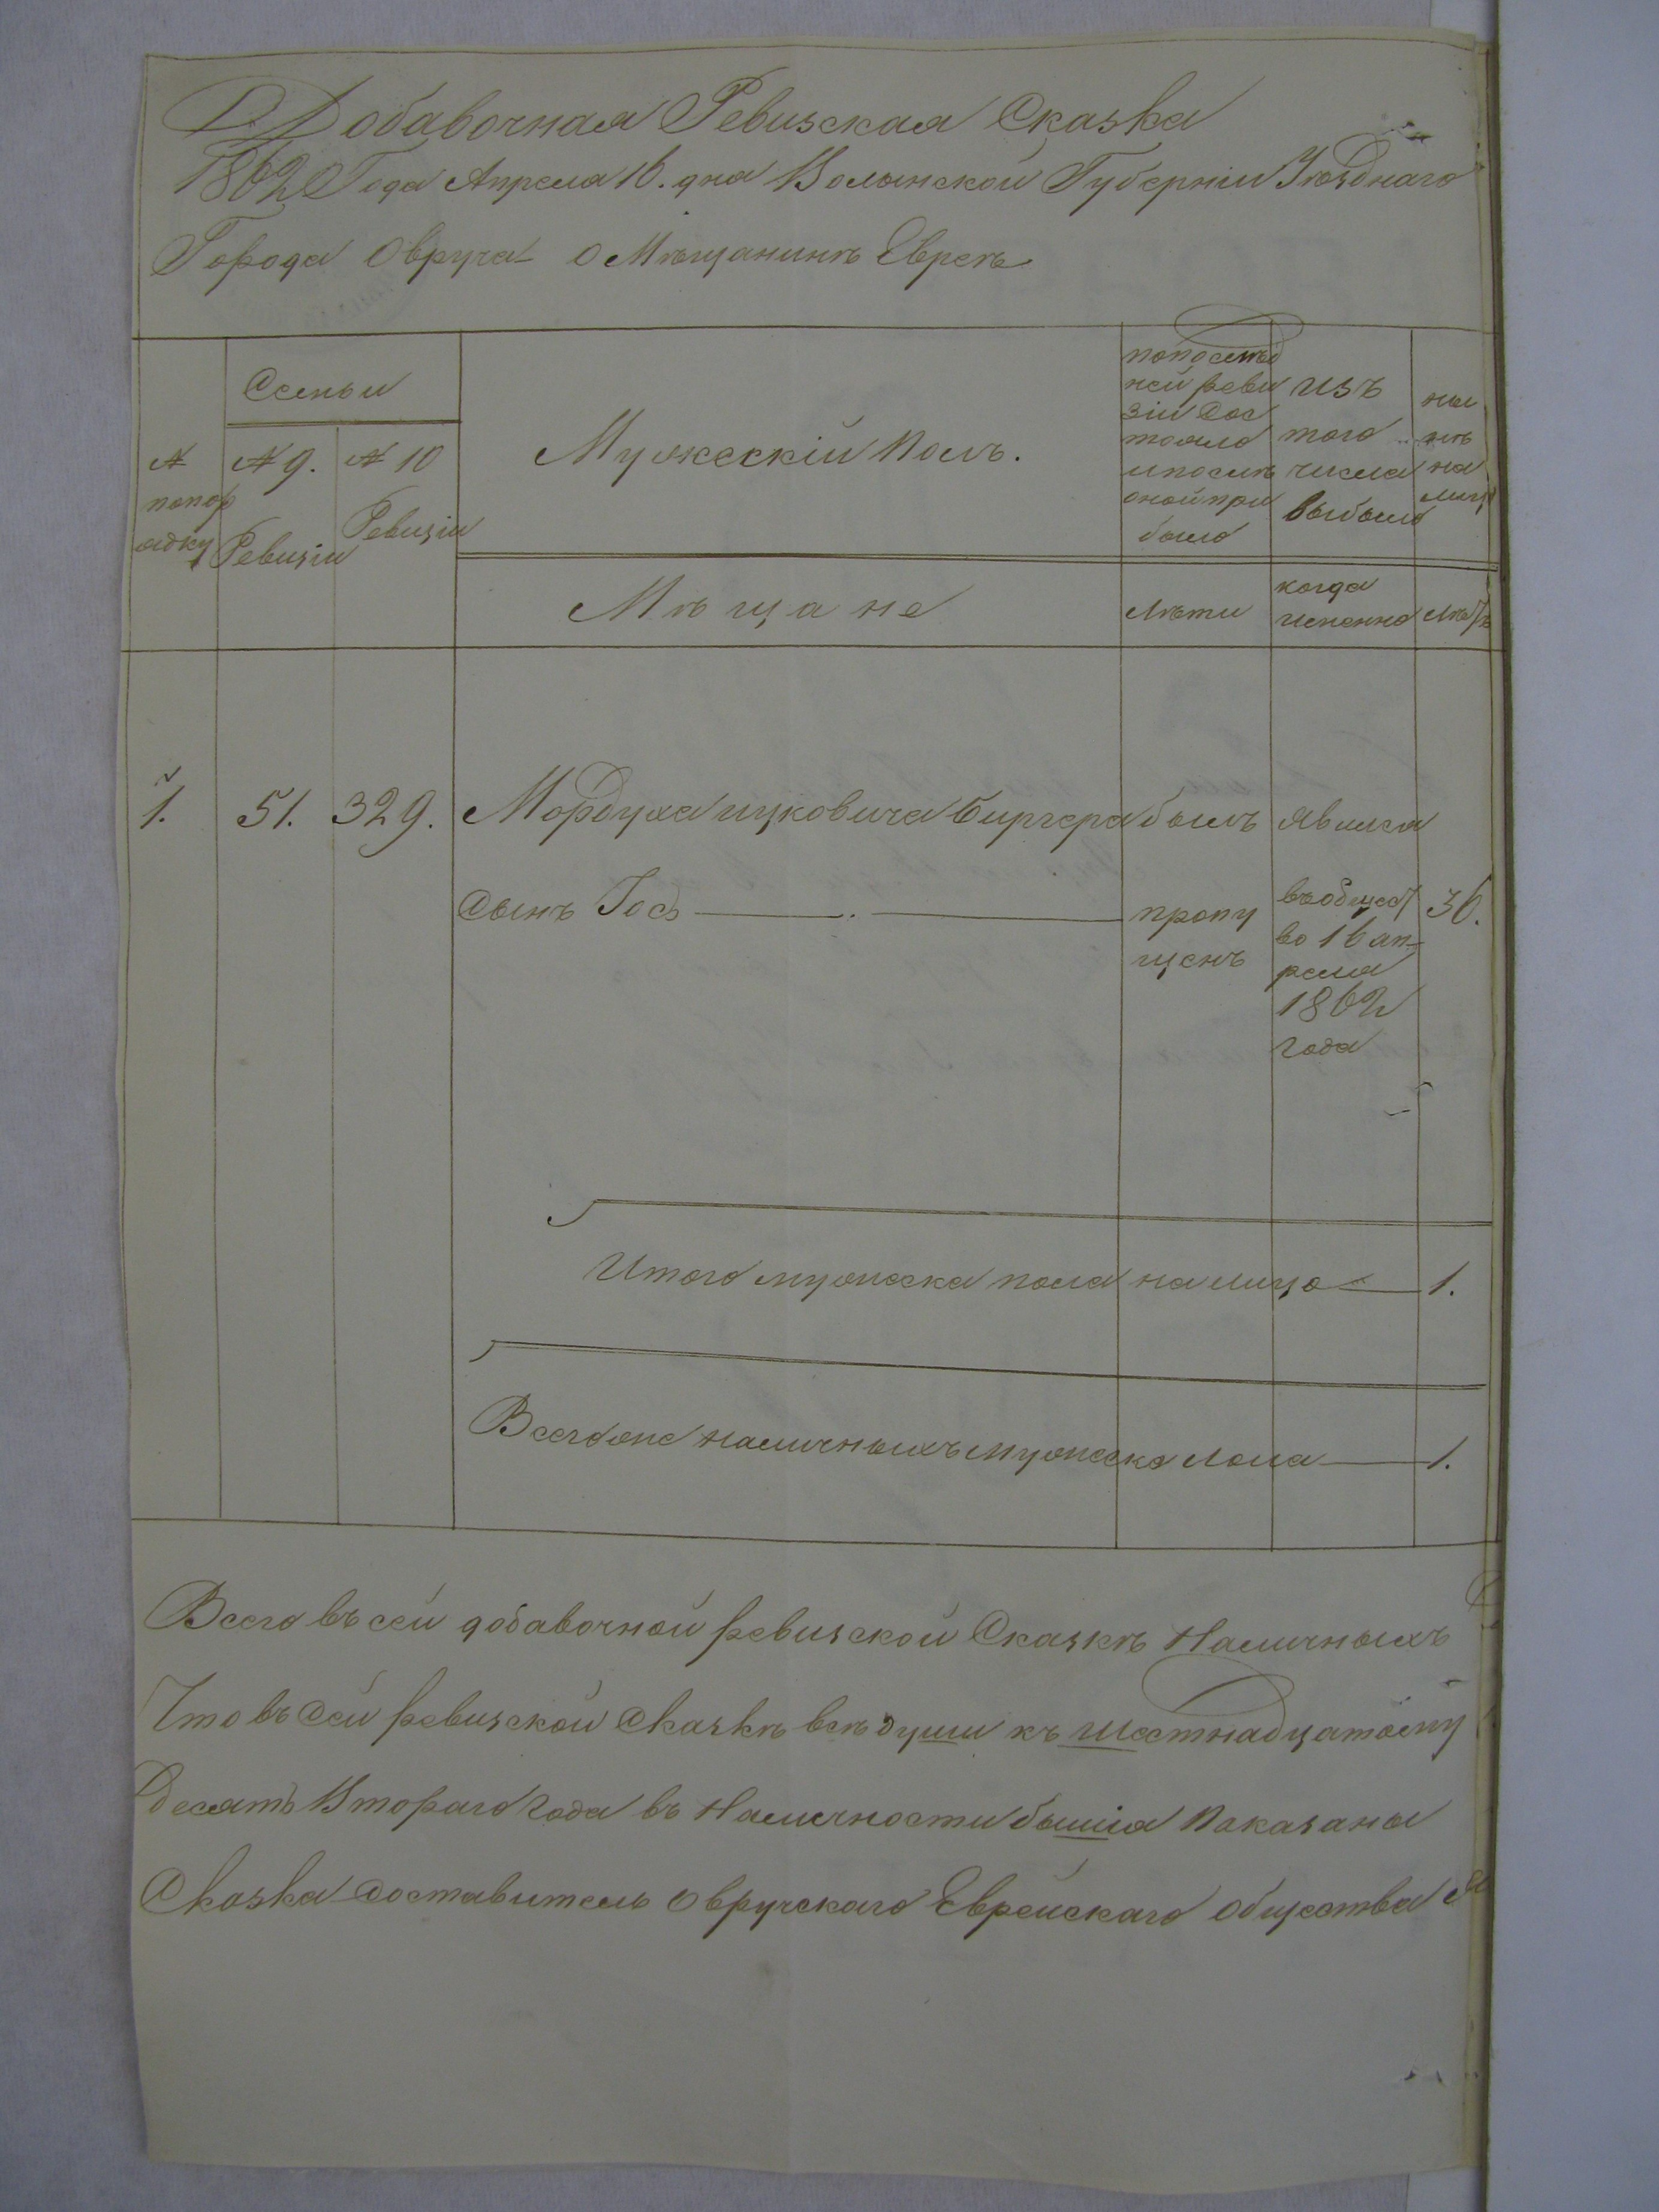 Добавочная Ревизская Сказка
1862 Года Апреля 16. дня Волынской Губерніи Уѣзднаго
Города Овруча о Мѣщанинѣ Евреѣ
Семьи
№
попор
ядку
№ 9.
Ревизіи
№ 10
Ревизіи
Мужескій полъ.
попослѣд
ней реви
зіи Сос
тояло
ипослѣ
оной при
было
изъ
того
числа
выбыло
ны
нѣ
на
лицо
Мѣщане
Лѣти
когда
именно
Лѣтъ
1. 51. 329. Мордуха ицковича Биргера былъ явился
Сынъ Іос
пропу
щенъ
въобщест
во 16 ап-
реля
1862
года
36.
Итого мужеска пола на лицо 1.
Всегоже наличныхъ мужеска пола 1.
Всего въ сей добавочной ревизской Сказкѣ Наличныхъ
Что въ Сей ревизской Сказкѣ всѣ души къ шестнадцатому
десятъ Втораго года въ Наличности бышія Показаны
Сказка-Доставитель Овручскаго Еврейскаго общества